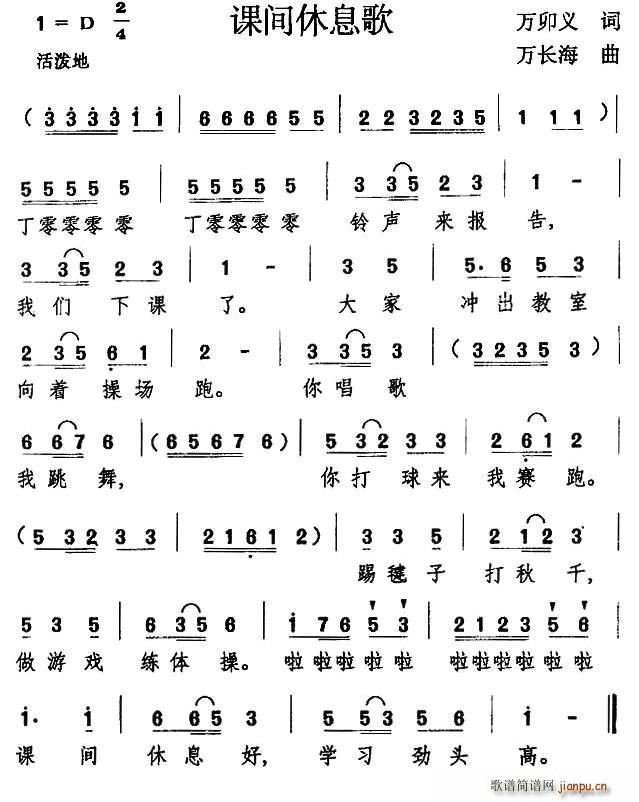 课间休息歌
1 = D 2/4
万卯义 词
活泼地
万长海 曲
( 3 3 3 3 1 1 | 6 6 6 6 5 5 | 2 2 3 2 3 5 | 1 1 1 )
5 5 5 5 5 | 5 5 5 5 5 | 3 3 5 2 3 | 1 - |
丁零零零零 丁零零零零 铃声来报告,
3 3 5 2 3 | 1 - | 3 5 | 5· 6 5 3 |
我们下课了。 大家 冲出教室
2 3 5 6 1 | 2 - | 3 3 5 3 | ( 3 2 3 5 3 ) |
向着操场跑。 你唱歌
6 6 7 6 | ( 6 5 6 7 6 ) | 5 3 2 3 3 | 2 6 1 2 |
我跳舞, 你打球来我赛跑。
( 5 3 2 3 3 | 2 1 6 1 2 ) | 3 3 5 | 2 1 2 3 |
踢毽子打秋千,
5 3 5 | 6 3 5 6 | 1 7 6 5 3 | 2 1 2 3 5 6 |
做游戏练体操。 啦啦啦啦啦 啦啦啦啦啦啦
1· 1 | 6 6 5 3 | 5 5 3 5 | 1 - ‖
课间休息好, 学习劲头高。
歌谱简谱网
jianpu.cn